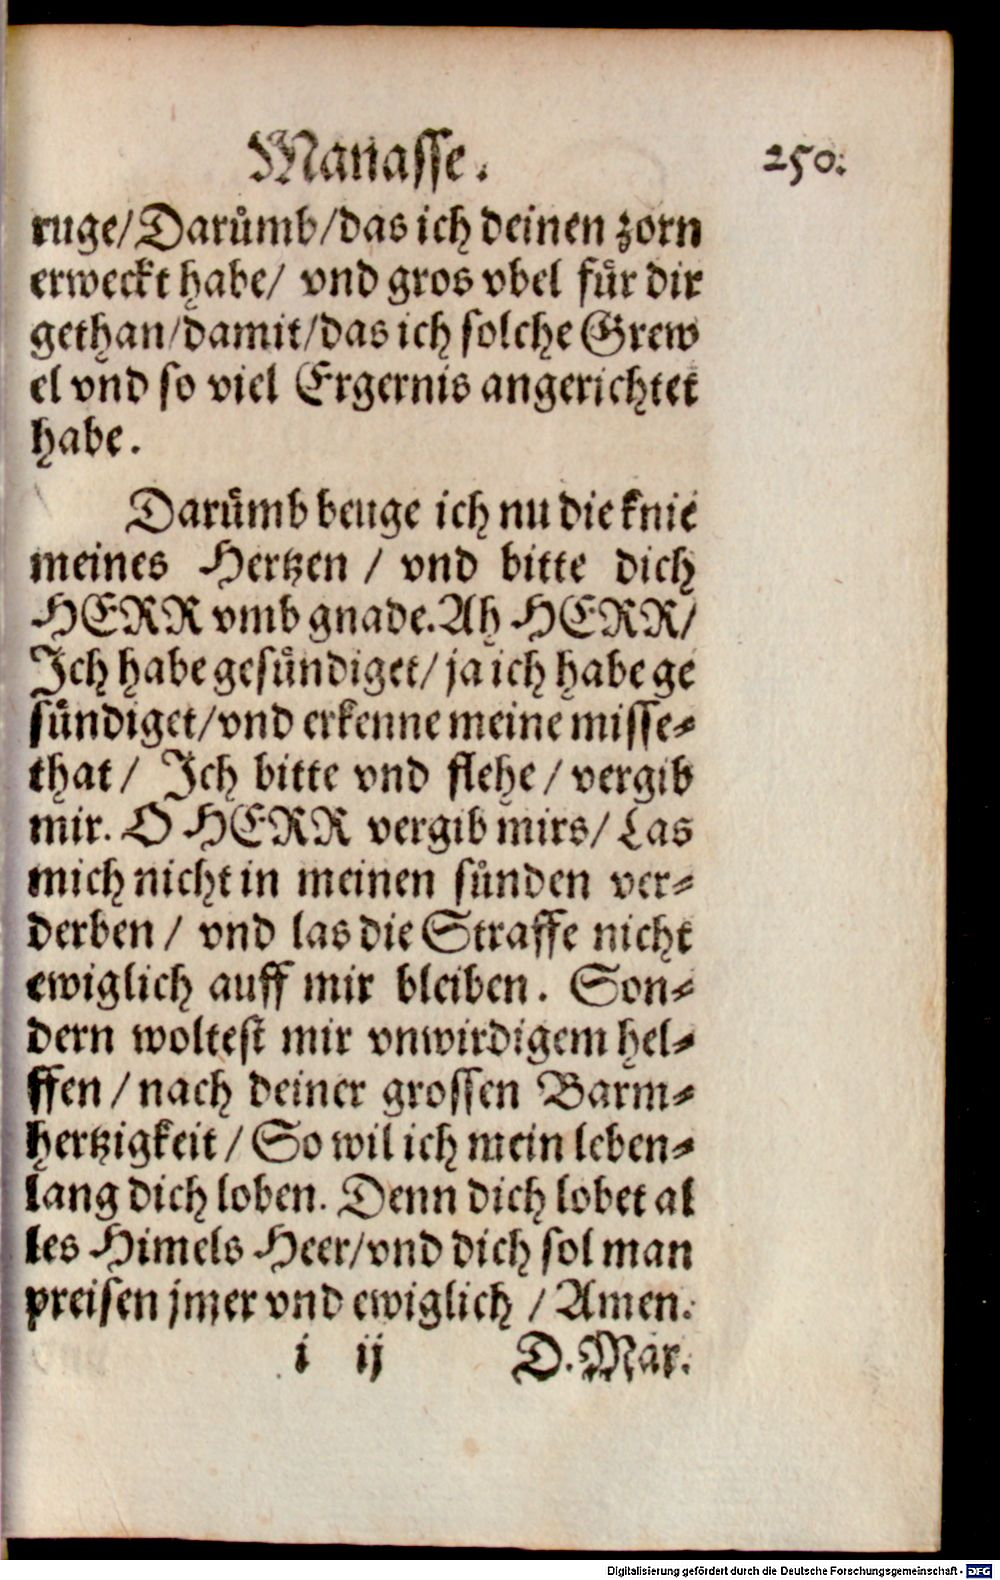 Manasse. 250.
ruge/Darůmb/das ich deinen zorn
erweckt habe/ vnd gros vbel fůr dir
gethan/damit/das ich solche Grew
el vnd so viel Ergernis angerichtet
habe.
Darůmb beuge ich nu die knie
meines Hertzen / vnd bitte dich
HERR vmb gnade. Ah HERR/
Ich habe gesůndiget/ ja ich habe ge
sůndiget/vnd erkenne meine misse-
that/ Ich bitte vnd flehe/ vergib
mir. O HERR vergib mirs/ Las
mich nicht in meinen sůnden ver-
derben/ vnd las die Straffe nicht
ewiglich auff mir bleiben. Son-
dern woltest mir vnwirdigem hel-
ffen/ nach deiner grossen Barm-
hertzigkeit/ So wil ich mein leben-
lang dich loben. Denn dich lobet al
les Himels Heer/vnd dich sol man
preisen jmer vnd ewiglich / Amen.
i ij D. Mar.
Digitalisierung gefördert durch die Deutsche Forschungsgemeinschaft - DFG